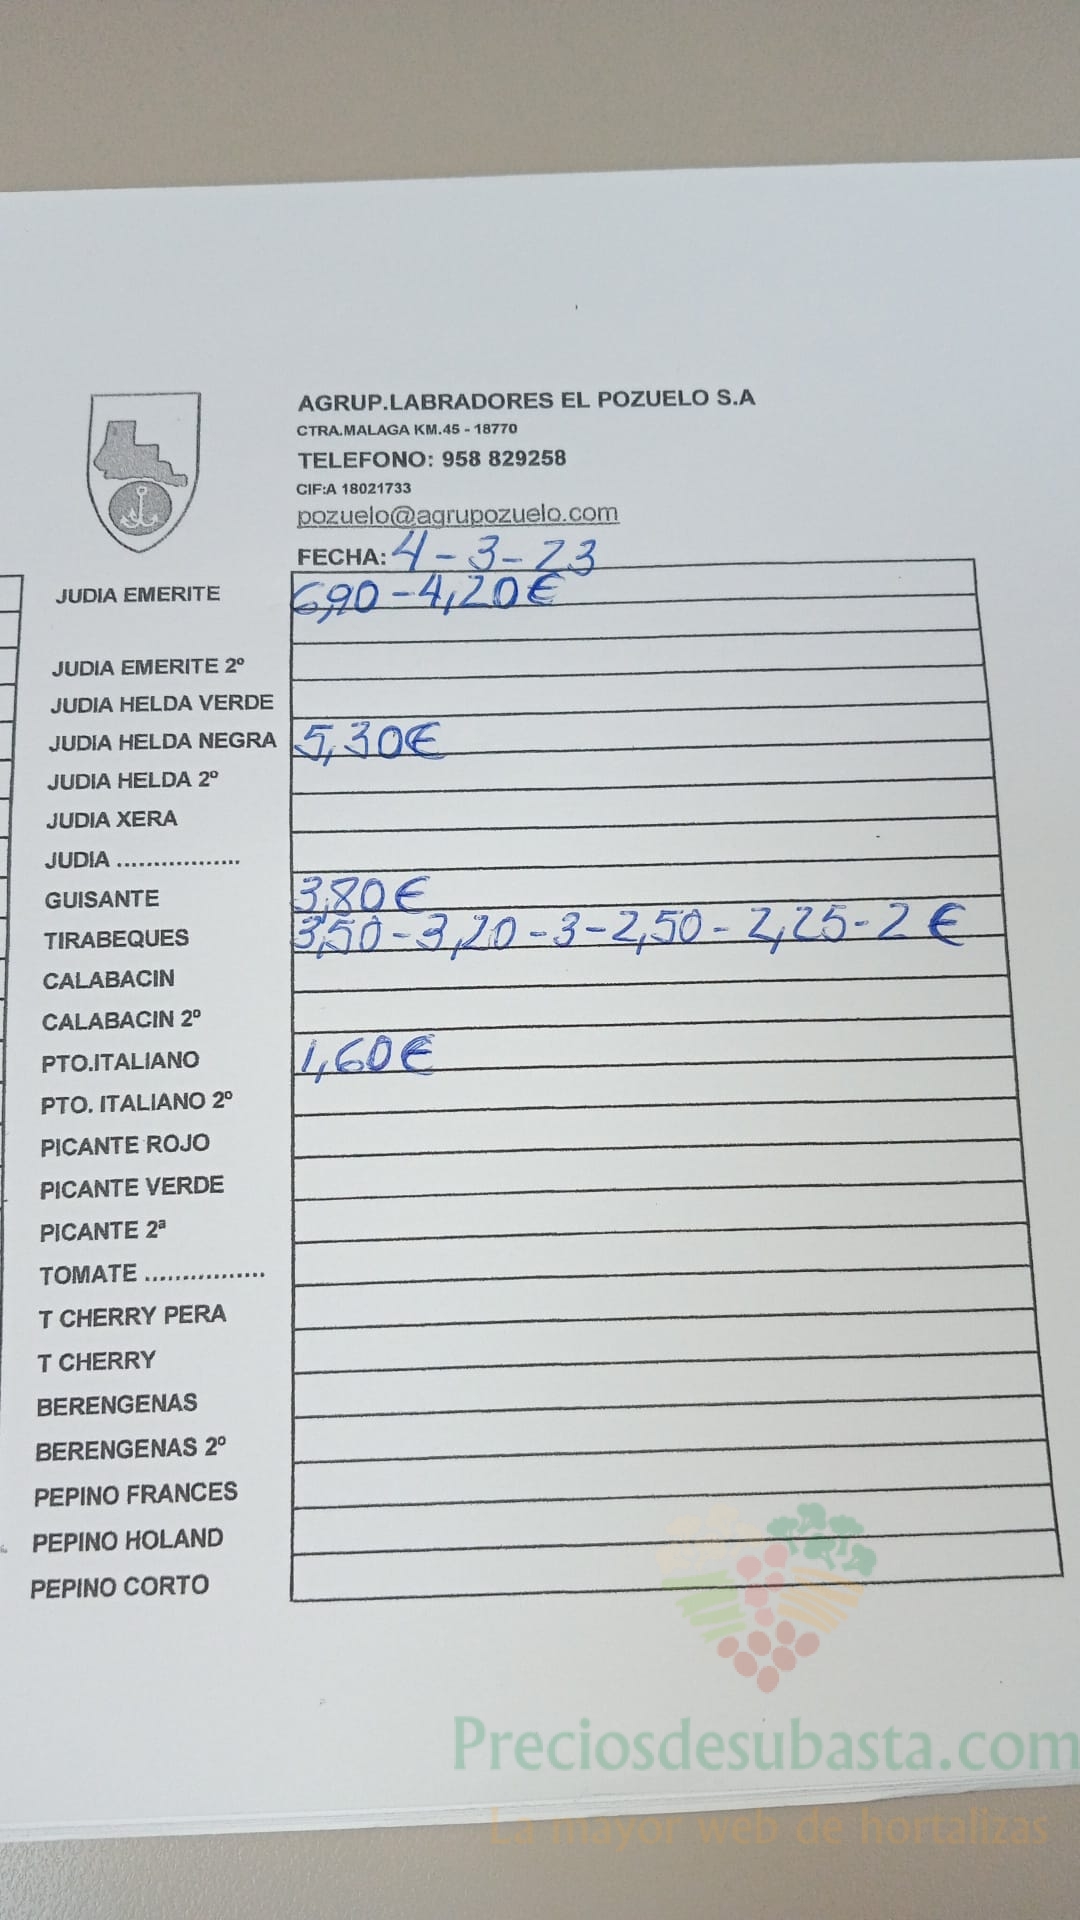 AGRUP.LABRADORES EL POZUELO S.A
CTRA.MALAGA KM.45 - 18770
TELEFONO: 958 829258
CIF:A 18021733
pozuelo@agrupozuelo.com
FECHA: 4-3-23
JUDIA EMERITE 6,90-4,20€
JUDIA EMERITE 2º
JUDIA HELDA VERDE
JUDIA HELDA NEGRA 5,30€
JUDIA HELDA 2º
JUDIA XERA
JUDIA .................
GUISANTE 3,80€
TIRABEQUES 3,50-3,20-3-2,50-2,25-2€
CALABACIN
CALABACIN 2º
PTO.ITALIANO 1,60€
PTO. ITALIANO 2º
PICANTE ROJO
PICANTE VERDE
PICANTE 2ª
TOMATE ................
T CHERRY PERA
T CHERRY
BERENGENAS
BERENGENAS 2º
PEPINO FRANCES
PEPINO HOLAND
PEPINO CORTO
Preciosdesubasta.com
La mayor web de hortalizas